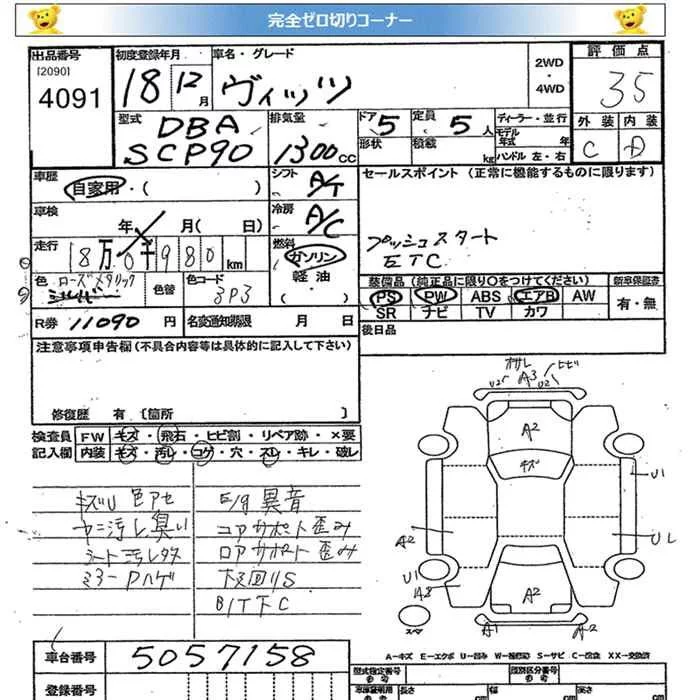 完全ゼロ切りコーナー
出品番号
[2090]
4091
初度登録年月
18年 12月
車名・グレード
ヴィッツ
2WD
・
4WD
評価点
35
外装 内装
C D
型式
DBA
SCP90
排気量
1300cc
ドア 5
形状
定員 5人
積載 kg
ディーラー・並行
モデル年式 年
ハンドル 左・右
車歴
自家用・( )
シフト
A/T
冷房
A/C
セールスポイント (正常に機能するものに限ります)
プッシュスタート
ETC
車検
年 月( 日)
走行
18万0千980km
燃料
ガソリン
・
軽油
( ・ )
色
ローズメタリック
シルバー
色替
色コード
3P3
装備品 (純正品に限り〇をつけてください)
新車保証書
PS PW ABS エアB AW
SR ナビ TV カワ
有・無
R券 11090円
名変通知期限 月 日
後日品
注意事項申告欄(不具合内容等は具体的に記入して下さい)
修復歴 有 [箇所 ]
検査員記入欄
FW キズ・飛石・ヒビ割・リペア跡・×要
内装 キズ・汚レ・コゲ・穴・スレ・キレ・破レ
キズU 色アセ
ヤニ汚レ臭い
シート汚レ
ミラーPハゲ
E/g 異音
コアサポート歪み
ロアサポート歪み
下廻りS
B/T下C
オサレ
ヒビ
U2
A3
U2
A2
キズ
U1
A2
UL
U1
A2
スペア
A1
A2
A-キズ E-エクボ U-凹み W-補修跡 S-サビ C-腐食 XX-交換済
車台番号
5057158
登録番号
型式指定番号
参考
類別区分番号
参考
長さ
幅
高さ